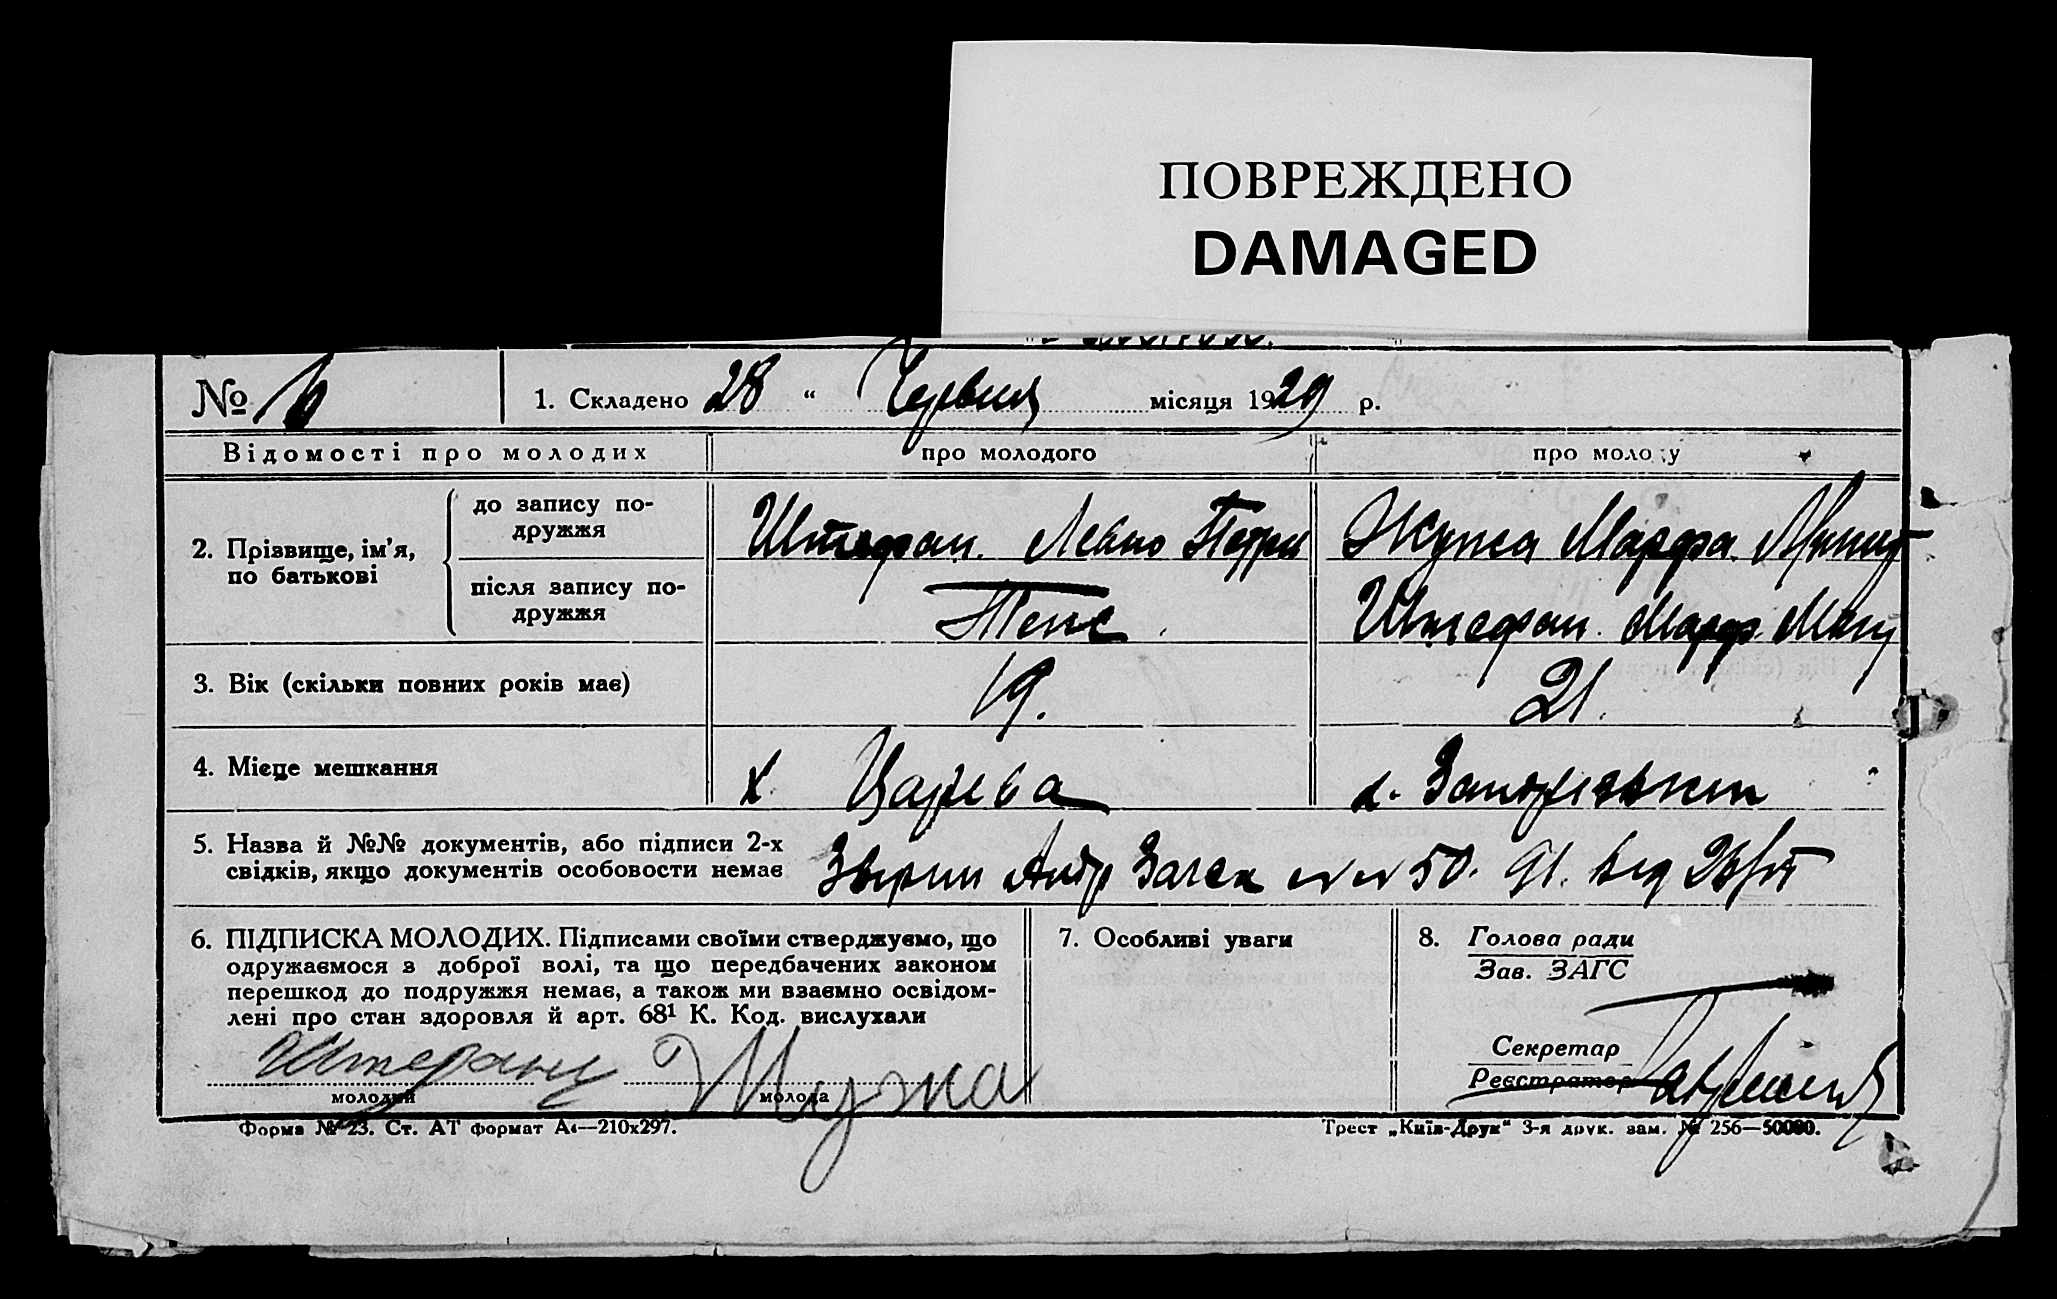 ПОВРЕЖДЕНО
DAMAGED
№ 6
1. Складено 28 “ Червця місяця 1929 р.
Відомості про молодих
про молодого
про молоду
2. Прізвище, ім’я, по батькові
до запису по-
дружжя
Штефан. Левко Петри
Жужа Марфа Микит
після запису по-
дружжя
Теж
Штефан. Марф. Мики
3. Вік (скільки повних років має)
19.
21.
4. Місце мешкання
х Царева
х.
5. Назва й №№ документів, або підписи 2-х
свідків, якщо документів особовости немає
Загса № № 50. 91. від
6. ПІДПИСКА МОЛОДИХ. Підписами своїми стверджуємо, що
одружаємося з доброї волі, та що передбачених законом
перешкод до подружжя немає, а також ми взаємно освідом-
лені про стан здоровля й арт. 68¹ К. Код. вислухали
Штефан Жужа
молодий молода
7. Особливі уваги
8. Голова ради
Зав. ЗАГС
Секретар
Реєстратор
Форма № 23. Ст. АТ формат А4—210х297.
Трест „Київ-Друк“ 3-я друк. зам. № 256—50000.